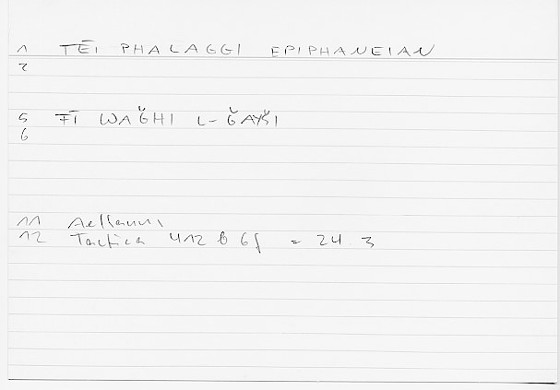 1 TĒI PHALAGGI EPIPHANEIAN
2
5 FĪ WAǦHI L-ǦAYŠI
6
11 Aelianus
12 Tactica 412 b 6f = 24 3